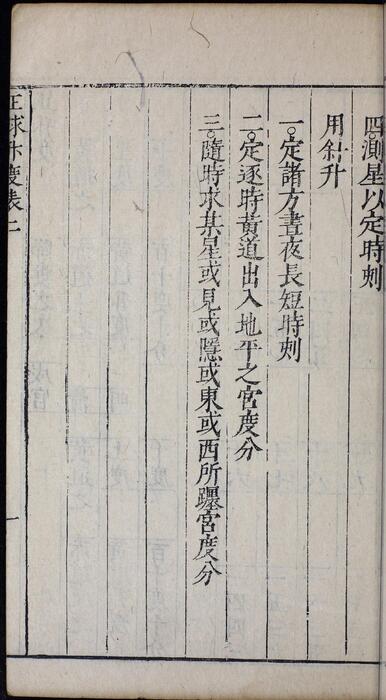 四測星以定時刻
用斜升
一定諸方晝夜長短時刻
二定逐時黃道出入地平之宮度分
三隨時求某星或見或隱或東或西所躔宮度分
正球升度表二
一